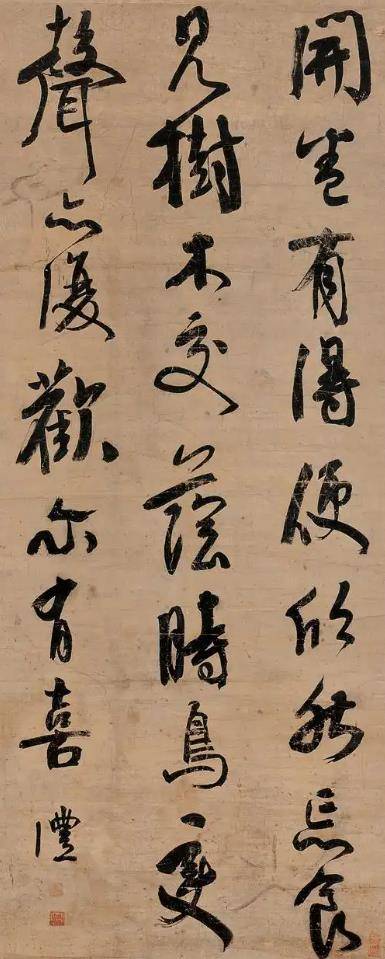 開卷有得便欣然忘食
見樹木交蔭時鳥變
聲亦復歡尔有喜